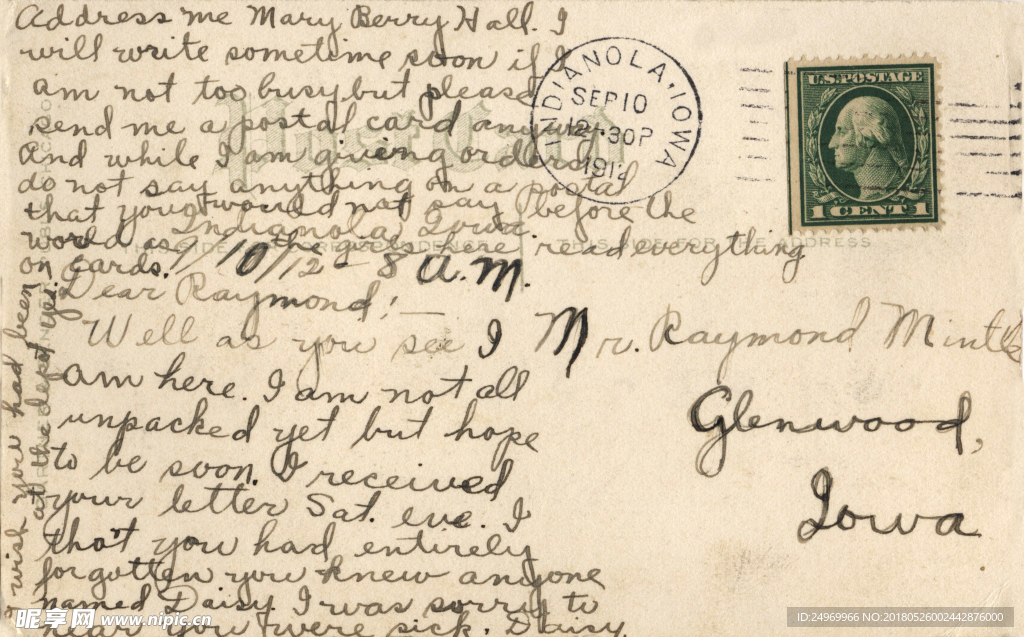 Address me Mary Berry Hall. I
will write sometime soon if I
am not too busy but please
send me a postal card anyway
And while I am giving orders
do not say anything on a postal
that you would not say before the
world as the girls here read everything
on cards.
Indianola, Iowa
9/10/12 - 8 A.M.
Dear Raymond!
Well as you see I
am here. I am not all
unpacked yet but hope
to be soon. I received
your letter Sat. eve. I
that you had entirely
forgotten you knew anyone
named Daisy I was sorry to
hear you were sick. Daisy
I wish you had been
at the depot yes.
Post Card
THIS SIDE FOR CORRESPONDENCE
THIS SIDE FOR THE ADDRESS
INDIANOLA, IOWA
SEP 10
12-30P
1912
U.S. POSTAGE
1 CENT 1
Mr. Raymond
Glenwood,
Iowa
昵享网 www.nipic.cn
ID:24969966 NO:20180526002442876000